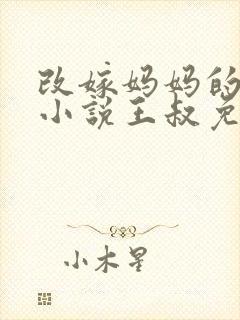 改嫁妈妈的
小说王叔免
小木星